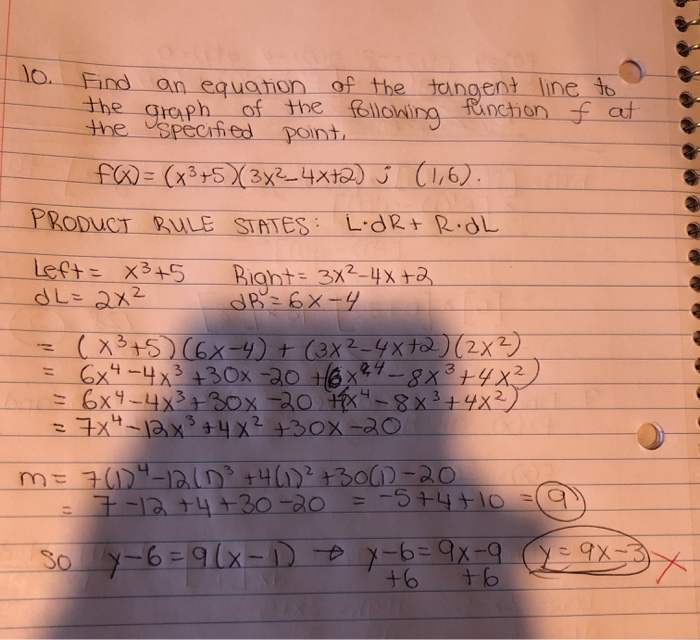 10. Find an equation of the tangent line to
the graph of the following function f at
the specified point.
f(x) = (x³+5)(3x²-4x+2) ; (1,6).
PRODUCT RULE STATES: L·dR + R·dL
Left = x³+5 Right = 3x²-4x+2
dL = 2x² dR = 6x-4
= (x³+5)(6x-4) + (3x²-4x+2)(2x²)
= 6x⁴-4x³+30x-20 + (6x⁴-8x³+4x²)
= 6x⁴-4x³+30x-20 + x⁴-8x³+4x²)
= 7x⁴-12x³+4x²+30x-20
m = 7(1)⁴-12(1)³+4(1)²+30(1)-20
= 7-12+4+30-20 = -5+4+10 = 9
so y-6=9(x-1) → y-6=9x-9 y=9x-3 X
+6 +6